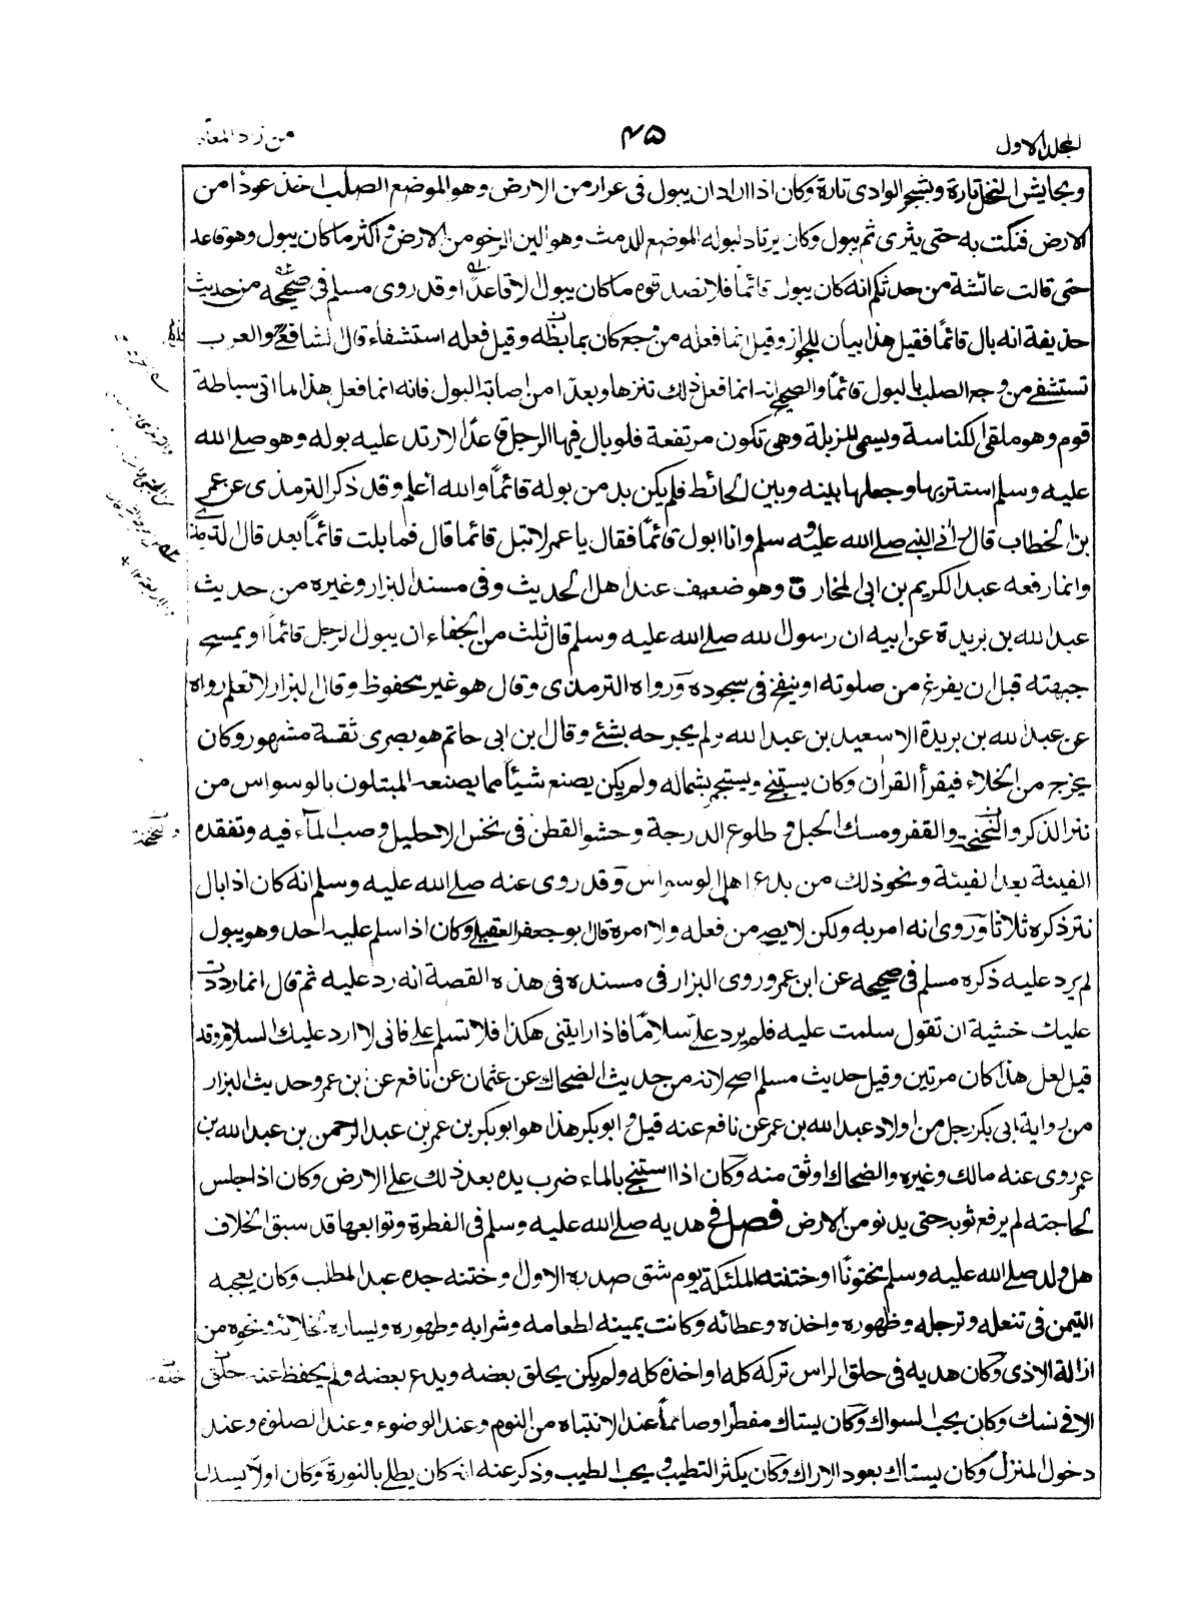 المجلد الاول
٤٥
من زاد المعاد
وبحايش النخل تارة وبشجر الوادى تارة وكان اذا اراد ان يبول فى عزاز من الارض وهو الموضع الصلب اخذ عودًا من
الارض فنكت به حتى يثرى ثم يبول وكان يرتاد لبوله الموضع الدمث وهو اللين الرخو من الارض واكثر ما كان يبول وهو قاعد
حتى قالت عائشة من حدثكم انه كان يبول قائماً فلا تصدقوه ما كان يبول الا قاعدًا وقد روى مسلم فى صحيحه من حديث
حذيفة انه بال قائمًا فقيل هذا بيان للجواز وقيل انما فعله من وجع كان بمابضه وقيل فعله استشفاء قال الشافعى والعرب
تستشفى من وجع الصلب بالبول قائمًا والصحيح انه انما فعل ذلك تنزها وبعدًا من اصابة البول فانه انما فعل هذا لما اتى سباطة
قوم وهو ملقى الكناسة ويسمى المزبلة وهى تكون مرتفعة فلو بال فيها الرجل قاعدًا لارتد عليه بوله وهو صلى الله
عليه وسلم استتر بها وجعلها بينه وبين الحائط فلم يكن بد من بوله قائمًا والله اعلم وقد ذكر الترمذى عن عمر
بن الخطاب قال رانى النبى صلى الله عليه وسلم وانا ابول قائمًا فقال يا عمر لا تبل قائما قال فما بلت قائماً بعد قال الترمذى
وانما رفعه عبد الكريم بن ابى المخارق وهو ضعيف عند اهل الحديث وفى مسند البزار وغيره من حديث
عبد الله بن بريدة عن ابيه ان رسول الله صلى الله عليه وسلم قال ثلث من الجفاء ان يبول الرجل قائماً او يمسح
جبهته قبل ان يفرغ من صلوته او ينفخ فى سجوده ورواه الترمذى وقال هو غير محفوظ وقال البزار لا نعلم رواه
عن عبد الله بن بريدة الا سعيد بن عبد الله ولم يجرحه بشئ وقال ابن ابى حاتم هو بصرى ثقة مشهور وكان
يخرج من الخلاء فيقرأ القران وكان يستنجى ويستجمر بشماله ولم يكن يصنع شيئًا مما يصنعه المبتلون بالوسواس من
نتر الذكر والنحنحة والقفز ومسك الحبل وطلوع الدرجة وحشو القطن فى نخس الاحليل وصب الماء فيه وتفقده
الفينة بعد الفينة ونحو ذلك من بدع اهل الوسواس وقد روى عنه صلى الله عليه وسلم انه كان اذا بال
نتر ذكره ثلاثا وروى انه امر به ولكن لا يصح من فعله ولا امره قال ابو جعفر العقيلى وكان اذا سلم عليه احد وهو يبول
لم يرد عليه ذكره مسلم فى صحيحه عن ابن عمر وروى البزار فى مسنده فى هذه القصة انه رد عليه ثم قال انما رددت
عليك خشية ان تقول سلمت عليه فلم يرد علىّ سلامًا فاذا رايتنى هكذا فلا تسلم على فانى لا ارد عليك السلام وقد
قيل لعل هذا كان مرتين وقيل حديث مسلم اصح لانه من حديث الضحاك عن عثمان عن نافع عن بن عمر وحديث البزار
من رواية ابى بكر رجل من اولاد عبد الله بن عمر عن نافع عنه قيل وابو بكر هذا هو ابو بكر بن عمر بن عبد الرحمن بن عبد الله بن
عمر روى عنه مالك وغيره والضحاك اوثق منه وكان اذا استنجى بالماء ضرب يده بعد ذلك على الارض وكان اذا جلس
لحاجته لم يرفع ثوبه حتى يدنو من الارض فصل فى هديه صلى الله عليه وسلم فى الفطرة وتوابعها قد سبق الخلاف
هل ولد صلى الله عليه وسلم مختونًا او ختنته الملئكة يوم شق صدره الاول او ختنه جده عبد المطلب وكان يعجبه
التيمن فى تنعله وترجله وطهوره واخذه وعطائه وكانت يمينه لطعامه وشرابه وطهوره ويساره لخلائه ونحوه من
ازالة الاذى وكان هديه فى حلق الراس تركه كله او اخذه كله ولم يكن يحلق بعضه ويدع بعضه ولم يحفظ عنه حلقه
الا فى نسك وكان يحب السواك وكان يستاك مفطرًا وصائماً عند الانتباه من النوم وعند الوضوء وعند الصلوة وعند
دخول المنزل وكان يستاك بعود الاراك وكان يكثر التطيب ويحب الطيب وذكر عنه انه كان يطلى بالنورة وكان اولًا يسدل